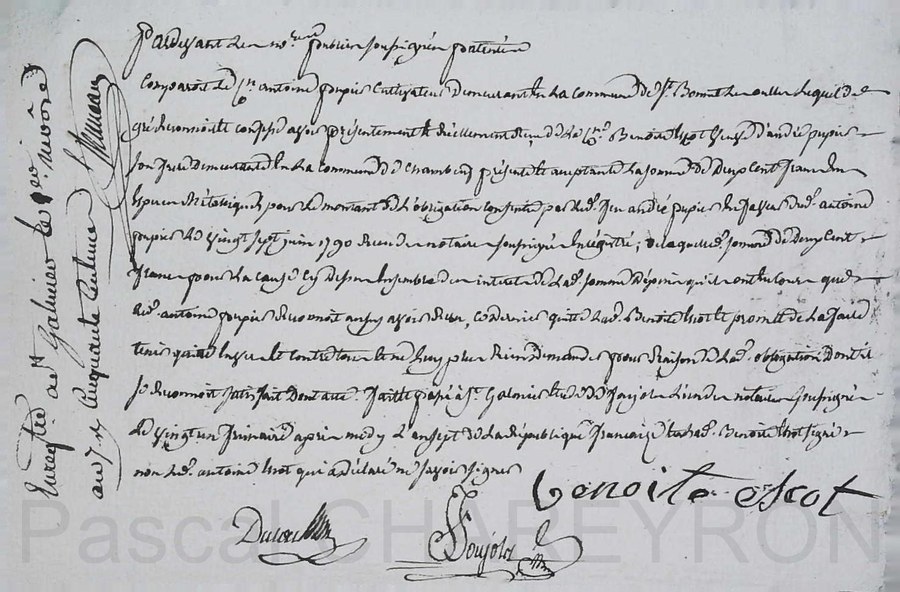 Pardevant les nores publics soussignés fut présent
Comparoit le cn antoine pupier Cultivateur Demeurant En La Commune de St Bonnet Les oulles Lequel de
gré Reconnoit et Confesse avoir présentement et Réellement Reçu de La cne Benoite Escot veuve d'andré pupier
son frere Demeurante En La Commune de Chambeuf présente et acceptante La somme de Deux Cent francs En
Especes Metaliques pour Le montant de L'obligation Consentie par led. feu andré pupier En faveur dud. antoine
pupier Le vingt sept juin 1790 Reçue du notaire soussigné Enregistré; de laquelle somme de Deux Cent
francs pour La Cause Cy dessus Ensemble des interets de Lad. somme Depuis qu'ils ont Eu Cours que
led. antoine pupier Reconnoit aussy avoir Reçu, Ce dernier quitte Lad. Benoite Escot et promet de La faire
tenir quitte Envers et Contre tous et ne Luy plus Rien demander pour Raison de Lad. obligation Dont il
se Reconnoit satisfait Dont acte fait et passé à St Galmier Etude de Soujolz L'un des notaires soussignés
Le vingt un frimaire apres midy L'an sept de La République française Et Lad. Benoite Escot signé
non led. antoine Escot qui a déclaré ne savoir signer
benoite escot
Soujolz
Enregistré a St Galmier le
an 7 R cinquante centimes
Pascal CHAREYRON